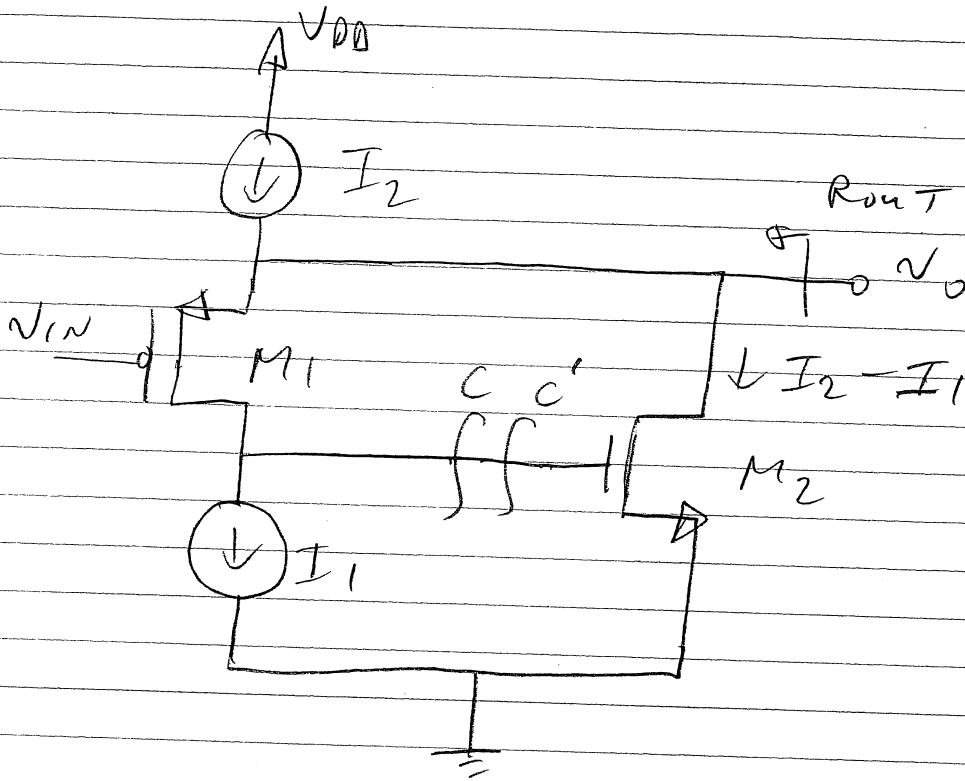 VDD
I2
ROUT
vo
vIN
M1
C C'
↓ I2 - I1
M2
I1